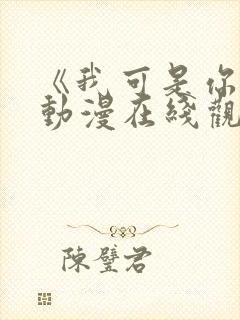 《我可是你
動漫在綫觀
陳璧君